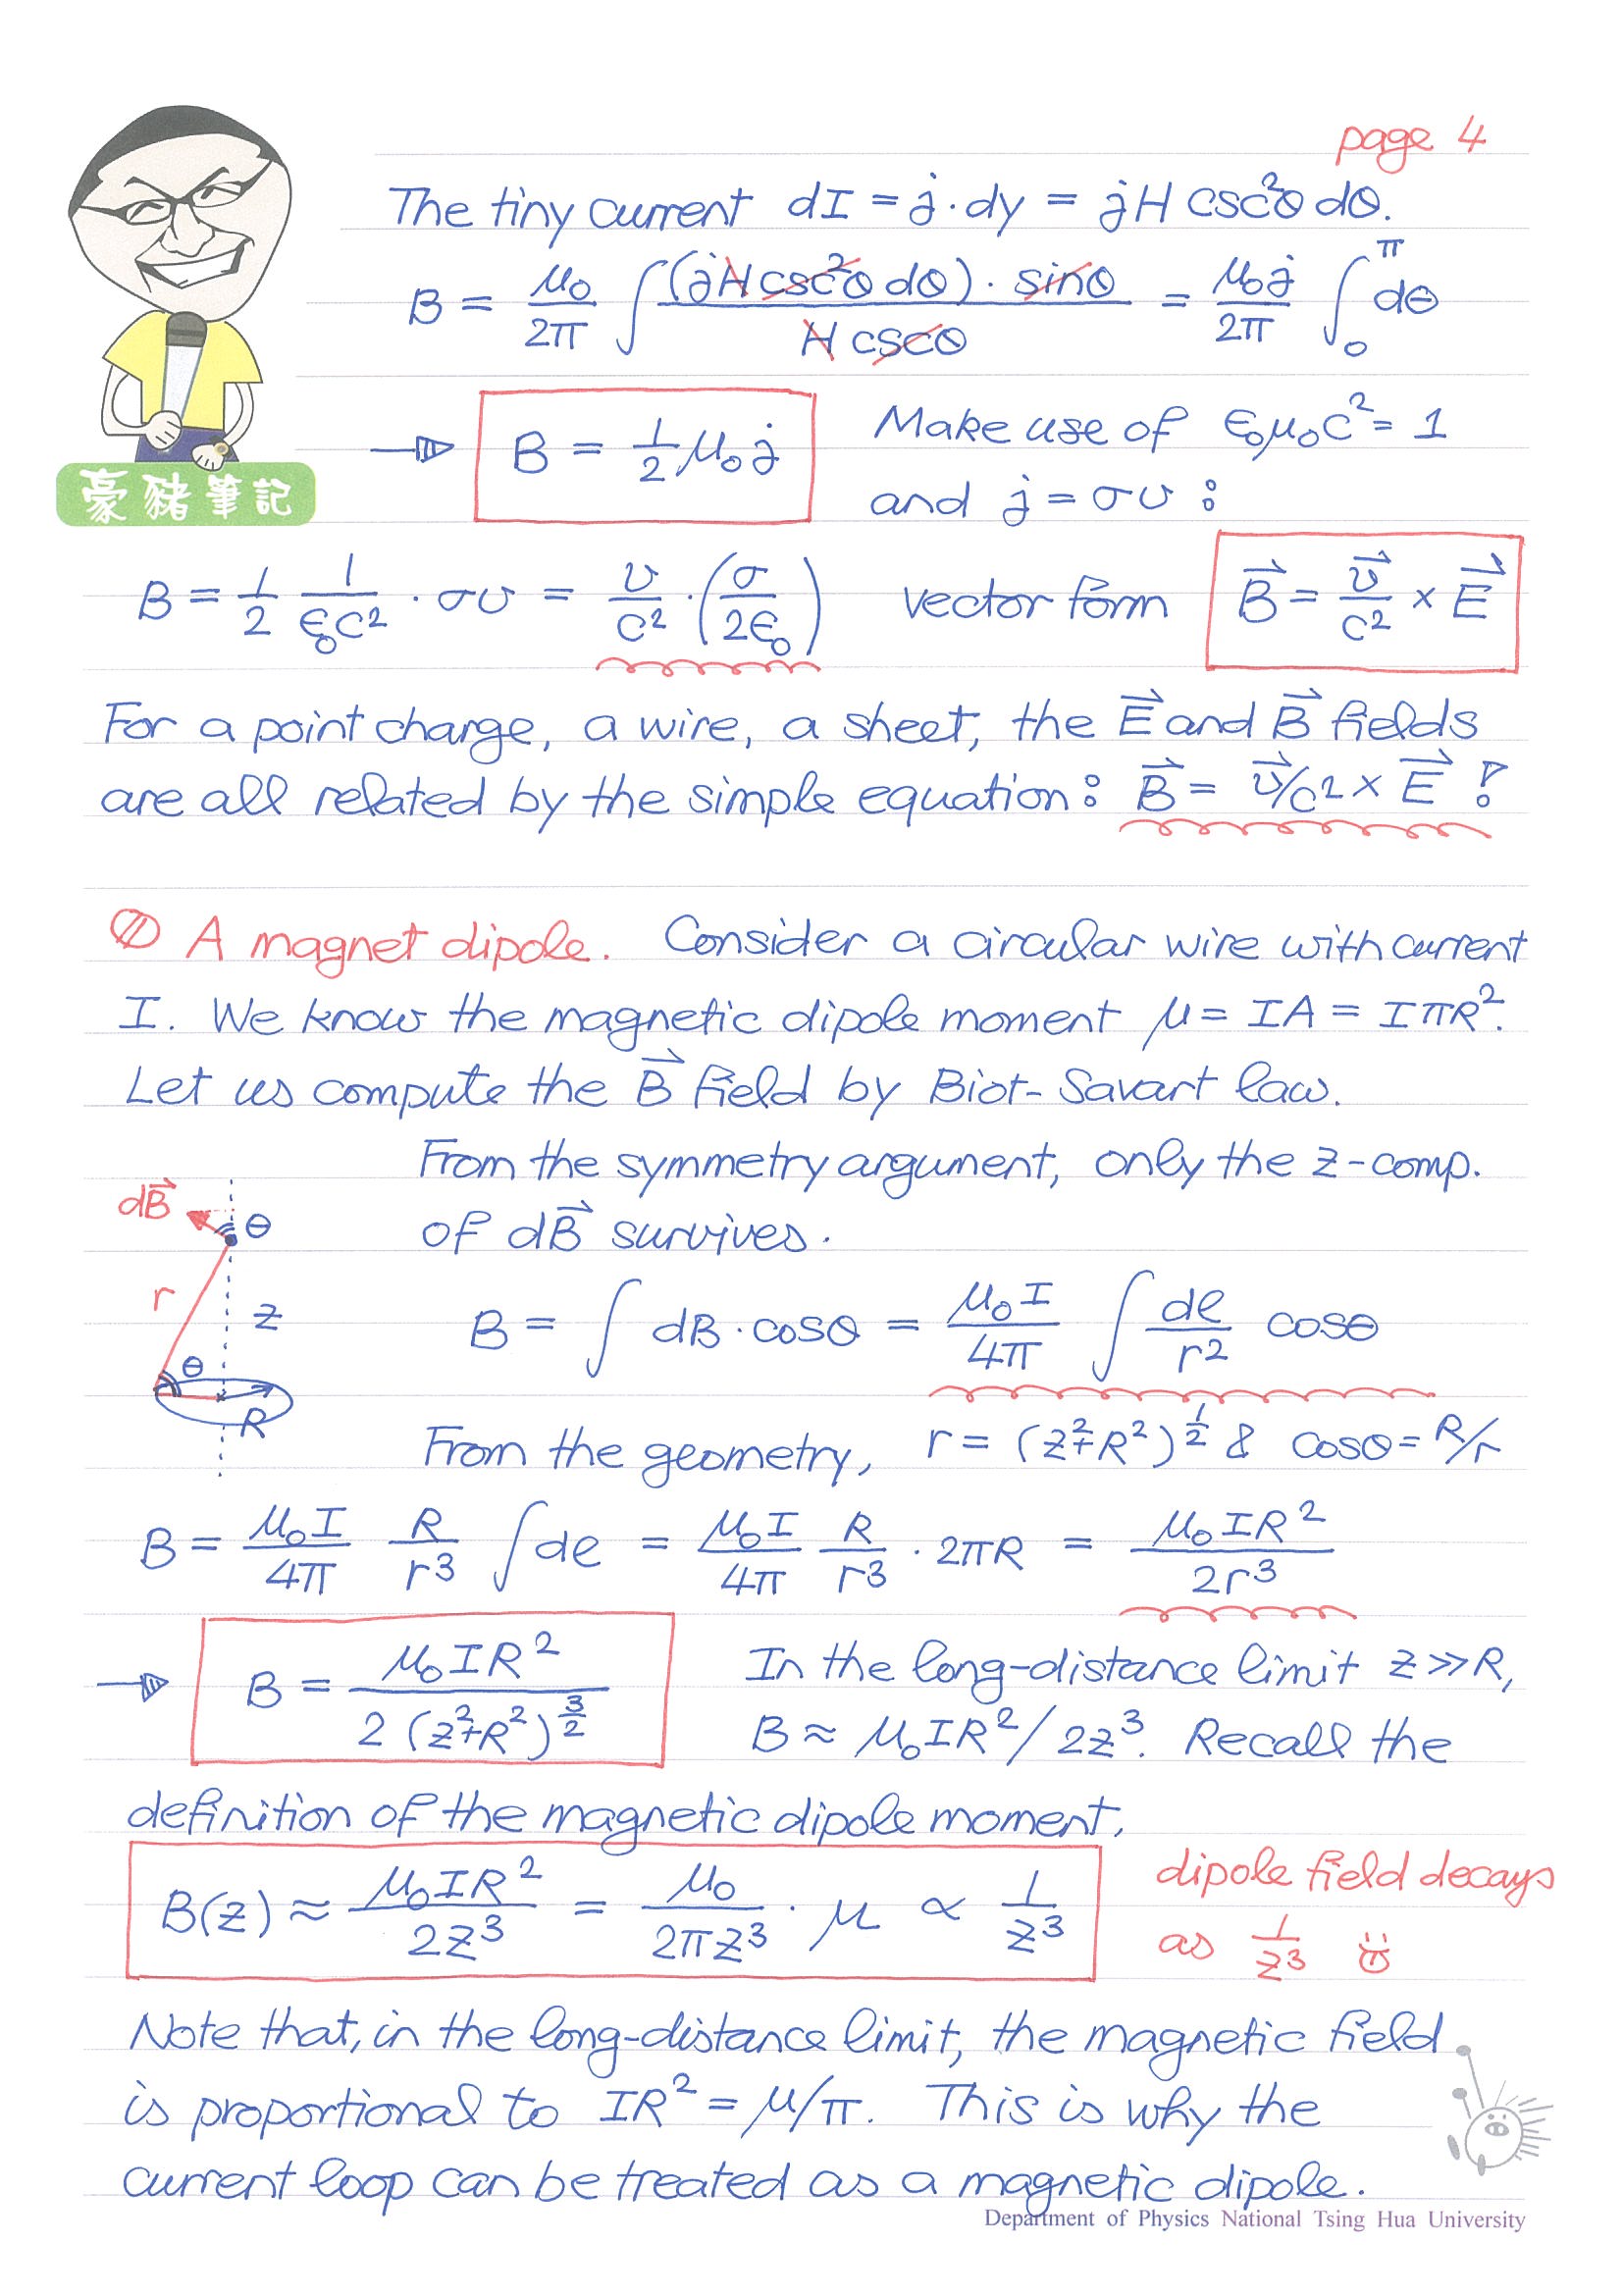 page 4
The tiny current dI = j·dy = jH csc²θ dθ.
B = μ₀/2π ∫ (jH csc²θ dθ)·sinθ / H cscθ = μ₀j/2π ∫₀^π dθ
B = 1/2 μ₀j
Make use of ε₀μ₀c² = 1
and j = σv :
豪豬筆記
B = 1/2 1/ε₀c² · σv = v/c² · (σ/2ε₀) vector form B⃗ = v⃗/c² × E⃗
For a point charge, a wire, a sheet, the E⃗ and B⃗ fields
are all related by the simple equation: B⃗ = v⃗/c² × E⃗ !
A magnet dipole. Consider a circular wire with current
I. We know the magnetic dipole moment μ = IA = IπR².
Let us compute the B⃗ field by Biot-Savart law.
From the symmetry argument, only the z-comp.
of dB⃗ survives.
dB⃗
θ
r
z
θ
R
B = ∫ dB·cosθ = μ₀I/4π ∫ dl/r² cosθ
From the geometry, r = (z²+R²)^1/2 & cosθ = R/r
B = μ₀I/4π R/r³ ∫ dl = μ₀I/4π R/r³ · 2πR = μ₀IR²/2r³
B = μ₀IR² / 2(z²+R²)^3/2
In the long-distance limit z≫R,
B ≈ μ₀IR²/2z³. Recall the
definition of the magnetic dipole moment,
B(z) ≈ μ₀IR²/2z³ = μ₀/2πz³ · μ ∝ 1/z³
dipole field decays
as 1/z³
Note that, in the long-distance limit, the magnetic field
is proportional to IR² = μ/π. This is why the
current loop can be treated as a magnetic dipole.
Department of Physics National Tsing Hua University